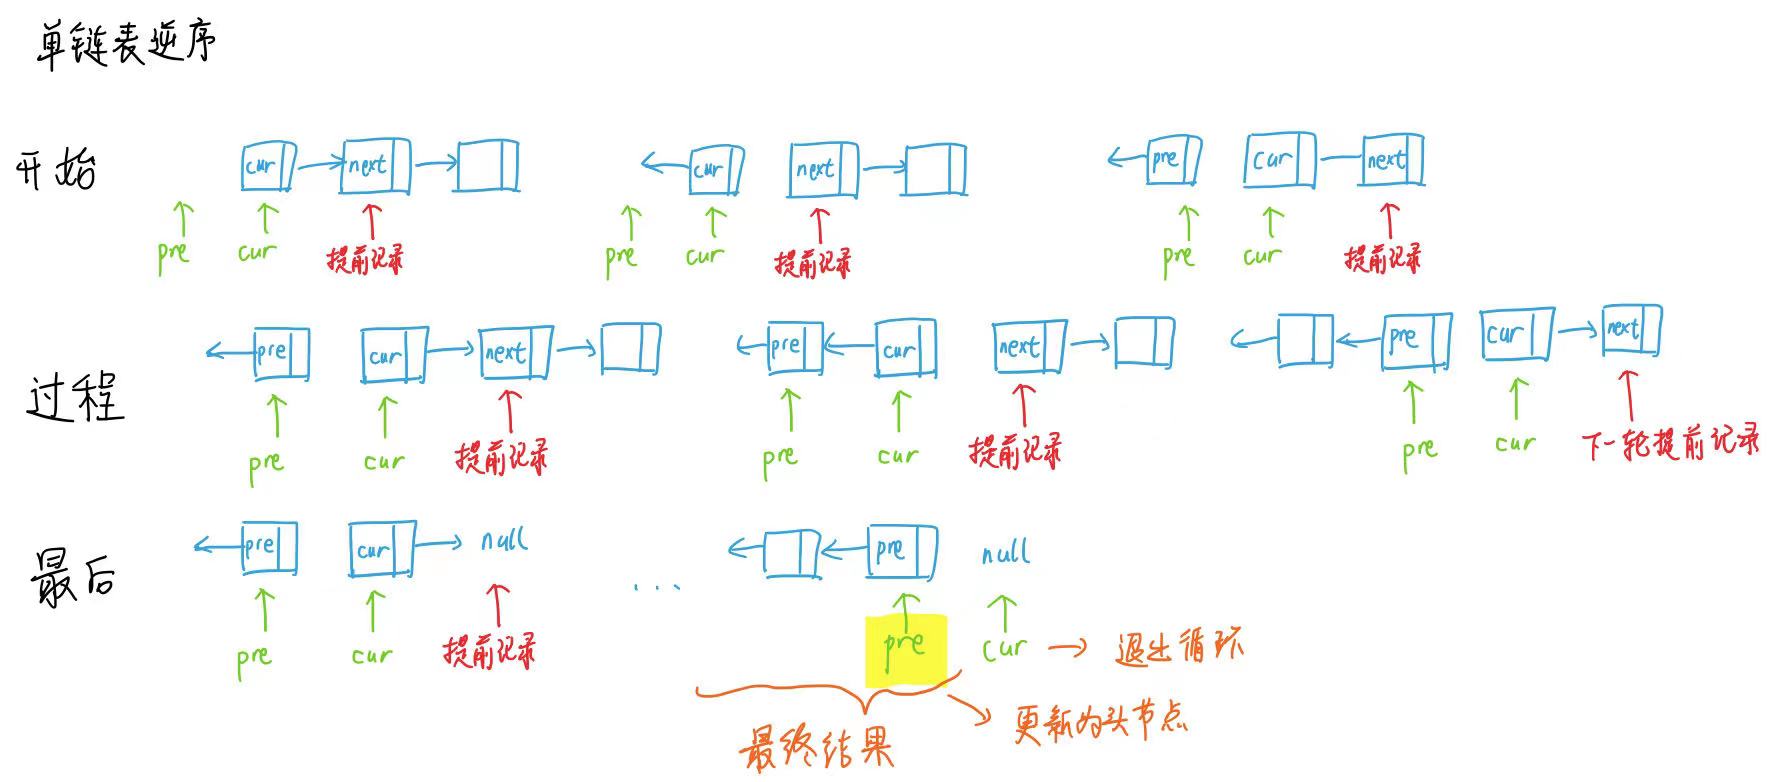 单链表逆序
开始
cur next cur next pre cur next
pre cur 提前记录 pre cur 提前记录 pre cur 提前记录
过程
pre cur next pre cur next pre cur next
pre cur 提前记录 pre cur 提前记录 pre cur 下一轮提前记录
最后
pre cur null ... pre null
pre cur 提前记录 pre cur 退出循环
最终结果 更新为头节点